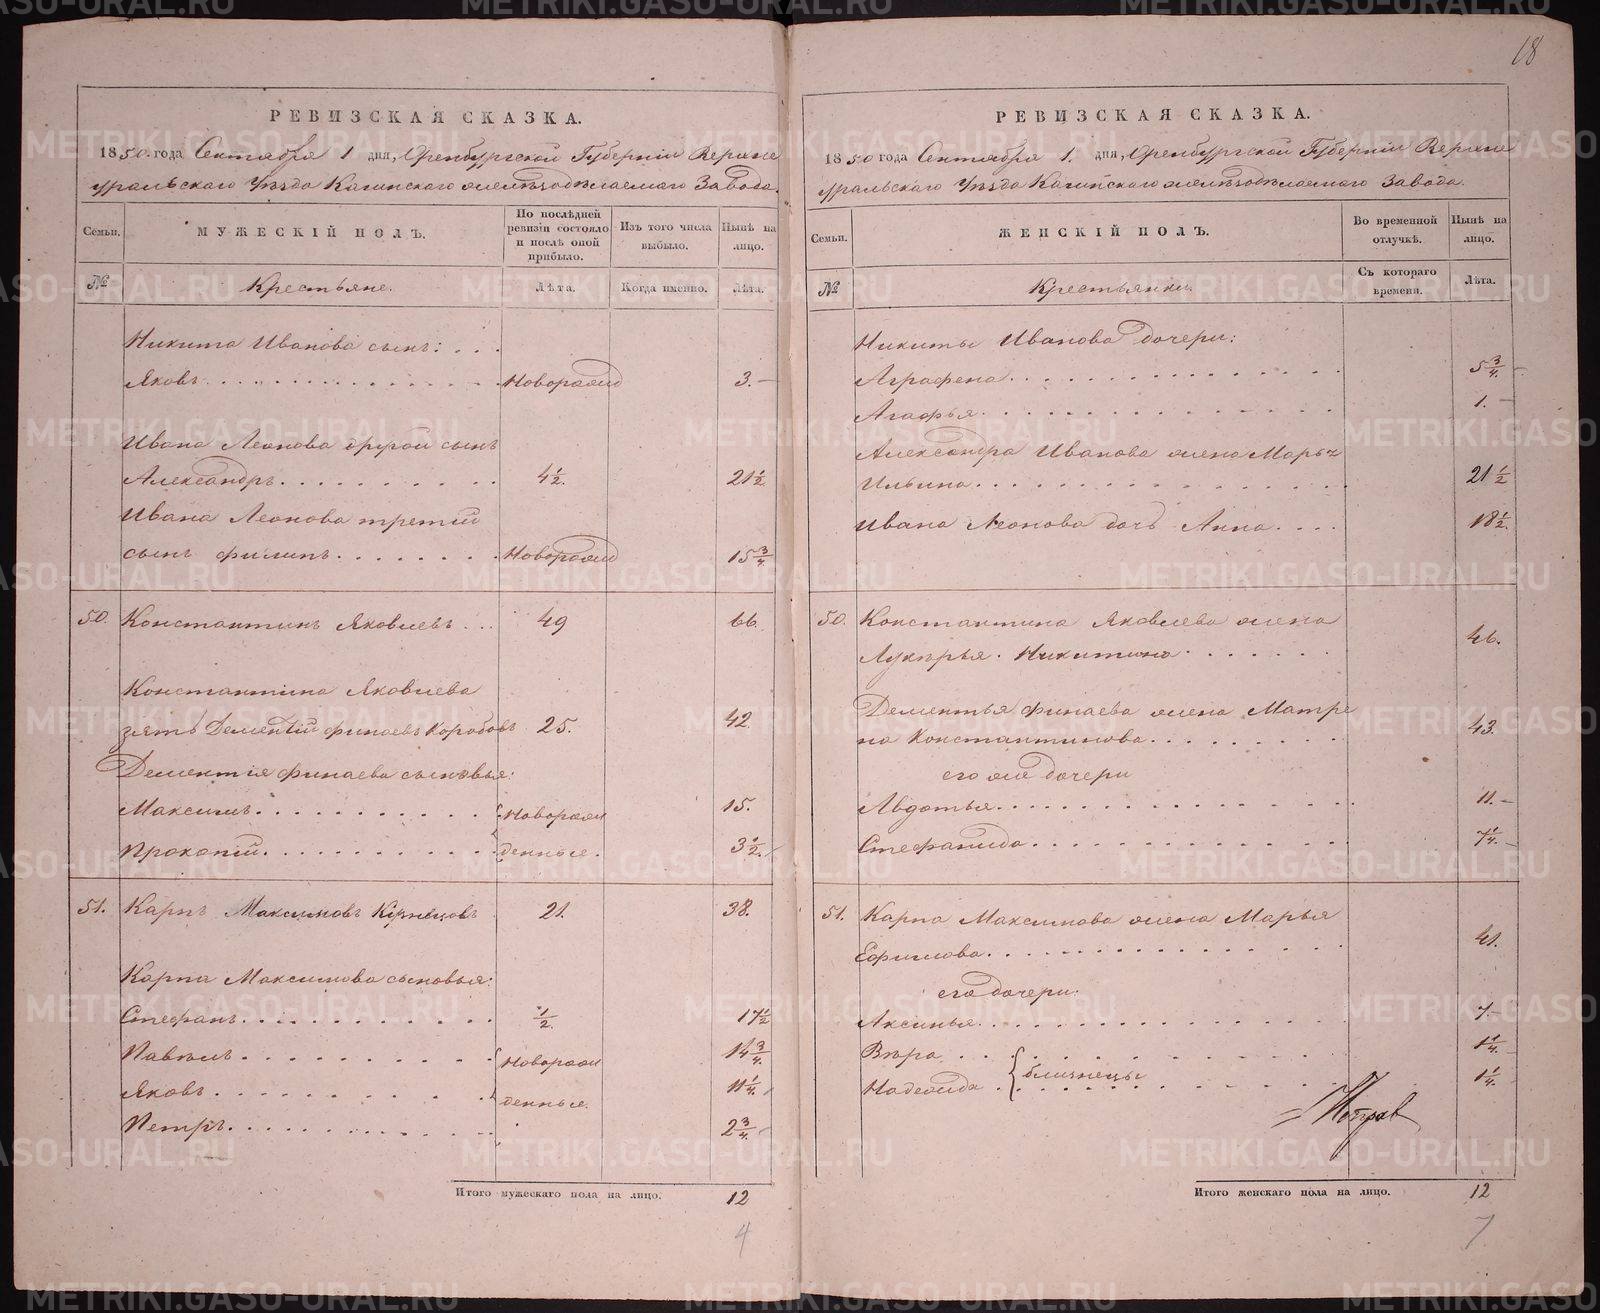 18
РЕВИЗСКАЯ СКАЗКА.
1850 года Сентября 1 дня, Оренбургской Губерніи Верхне
уральскаго Уѣзда Кагинскаго желѣзодѣлаемаго Завода.
Семьи.
МУЖЕСКІЙ ПОЛЪ.
По послѣдней ревизіи состояло и послѣ оной прибыло.
Изъ того числа выбыло.
Нынѣ на лицо.
№ Крестьяне. Лѣта. Когда именно. Лѣта.
Никита Иванова сынъ:
Яковъ Новорожд 3.
Ивана Леонова другой сынъ
Александръ 4½. 21½
Ивана Леонова третій
сынъ Филипъ Новорожд 15¾
50. Константинъ Яковлевъ 49 66
Константина Яковлева
зять Дементій Финаевъ Коробовъ 25. 42
Дементія Финаева сыновья:
Максимъ Новорожд 15.
Прокопій денные. 3½
51. Карпъ Максимовъ Кузнецовъ 21. 38.
Карпа Максимова сыновья:
Стефанъ ½. 17½
Павелъ Новорожд 14¾
Яковъ денные. 11¼
Петръ 2¾
Итого мужескаго пола на лицо. 12
4
РЕВИЗСКАЯ СКАЗКА.
1850 года Сентября 1. дня, Оренбургской Губерніи Верхне
уральскаго Уѣзда Кагинскаго желѣзодѣлаемаго Завода.
Семьи.
ЖЕНСКІЙ ПОЛЪ.
Во временной отлучкѣ.
Нынѣ на лицо.
№ Крестьянки. Съ котораго времени. Лѣта.
Никиты Иванова дочери:
Аграфена 5¾
Агафья 1.
Александра Иванова жена Марья
Ильина 21½
Ивана Леонова дочь Анна 18½
50. Константина Яковлева жена
Лукерья Никитина 46.
Дементья Финаева жена Матре
на Константинова 43.
его же дочери
Авдотья 11.
Стефанида 7¼
51. Карпа Максимова жена Марья
Ефимова 41.
его дочери:
Аксинья 7
Вѣра близнецы 1¼
Надежда 1¼
Итого женскаго пола на лицо. 12
7
METRIKI.GASO-URAL.RU